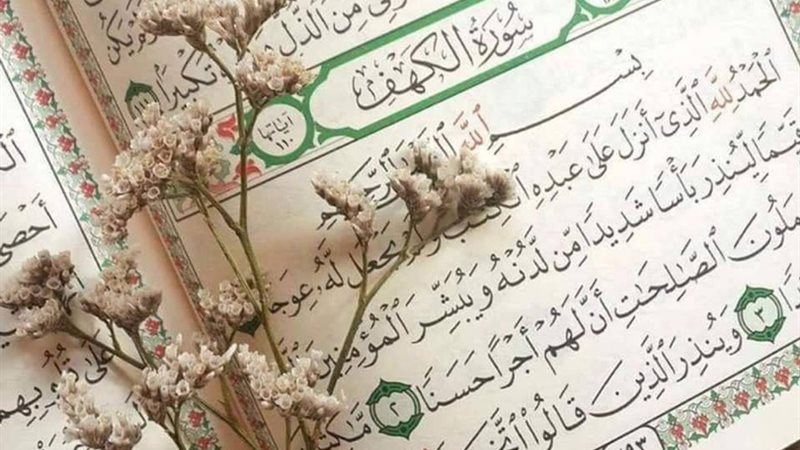 وَلِيٌّ مِّنَ ٱلذُّلِّ وَكَبِّرْهُ تَكْبِيرًا ١١١
سُورَةُ الكَهْفِ
آيَاتُهَا ١١٠
بِسْمِ ٱللَّهِ ٱلرَّحِيمِ
ٱلْحَمْدُ لِلَّهِ ٱلَّذِىٓ أَنزَلَ عَلَىٰ عَبْدِهِ ٱلْكِتَٰبَ وَلَمْ يَجْعَل لَّهُۥ عِوَجَا
قَيِّمًا لِّيُنذِرَ بَأْسًا شَدِيدًا مِّن لَّدُنْهُ وَيُبَشِّرَ ٱلْمُؤْمِنِينَ
مَلُونَ ٱلصَّٰلِحَٰتِ أَنَّ لَهُمْ أَجْرًا حَسَنًا ٢ مَّٰكِثِ
٣ وَيُنذِرَ ٱلَّذِينَ قَالُوا۟ ٱتَّخَ
أَحْصَىٰ
عَلَىٰ قُلُوبِهِمْ